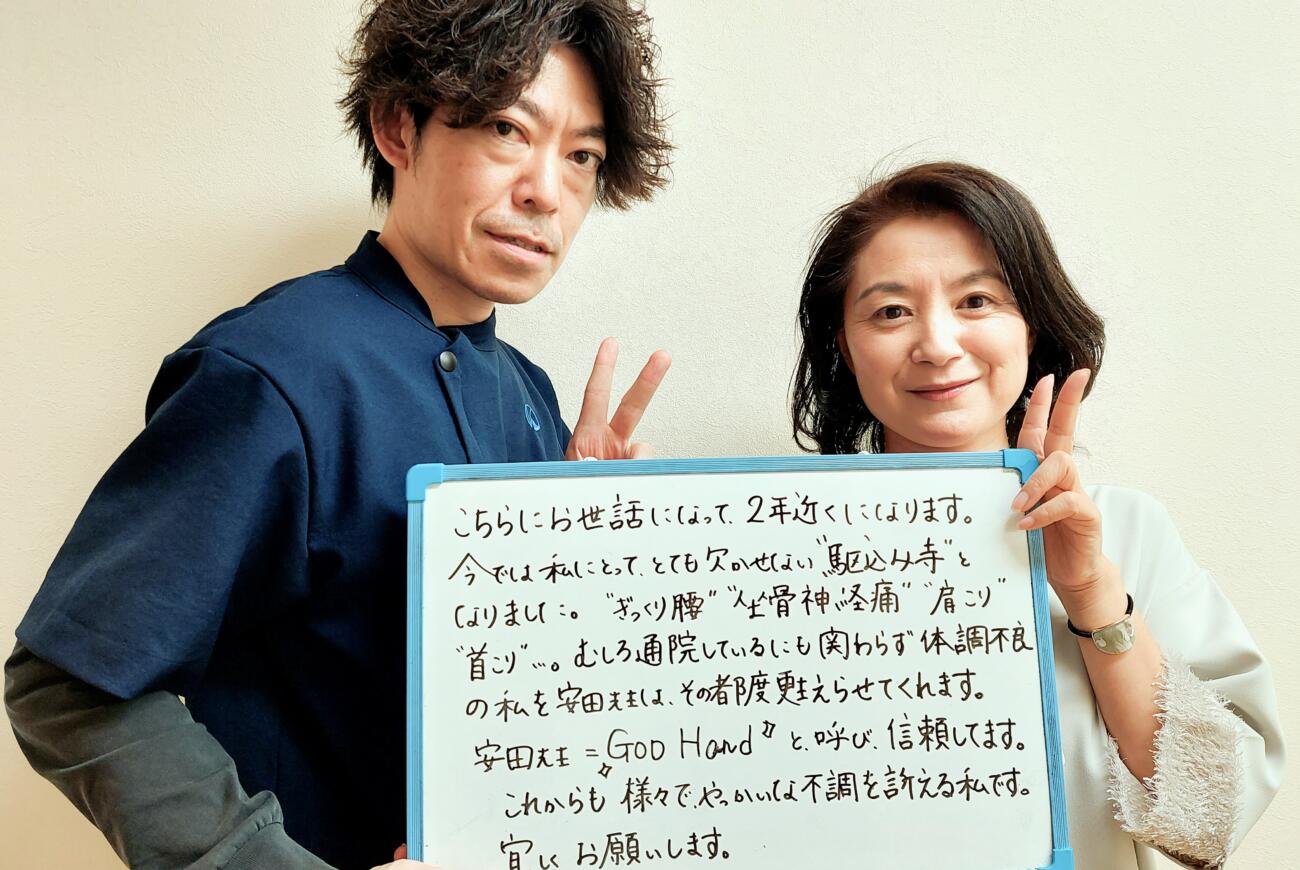 こちらにお世話になって、2年近くになります。
今では私にとって、とても欠かせない"駆込み寺"と
なりました。"ぎっくり腰""坐骨神経痛""肩こり"
"首こり"…。むしろ通院しているにも関わらず体調不良
の私を安田先生は、その都度甦えらせてくれます。
安田先生=GOD Handと、呼び、信頼してます。
これからも様々で、やっかいな不調を訴える私です。
宜しくお願いします。